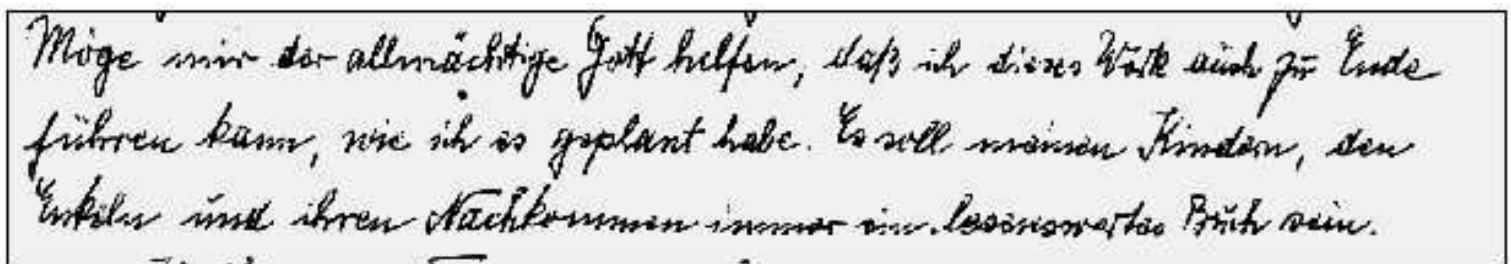 Möge mir der allmächtige Gott helfen, daß ich dieses Werk auch zu Ende
führen kann, wie ich es geplant habe. Es soll meinen Kindern, den
Enkeln und ihren Nachkommen immer ein lesenswertes Buch sein.